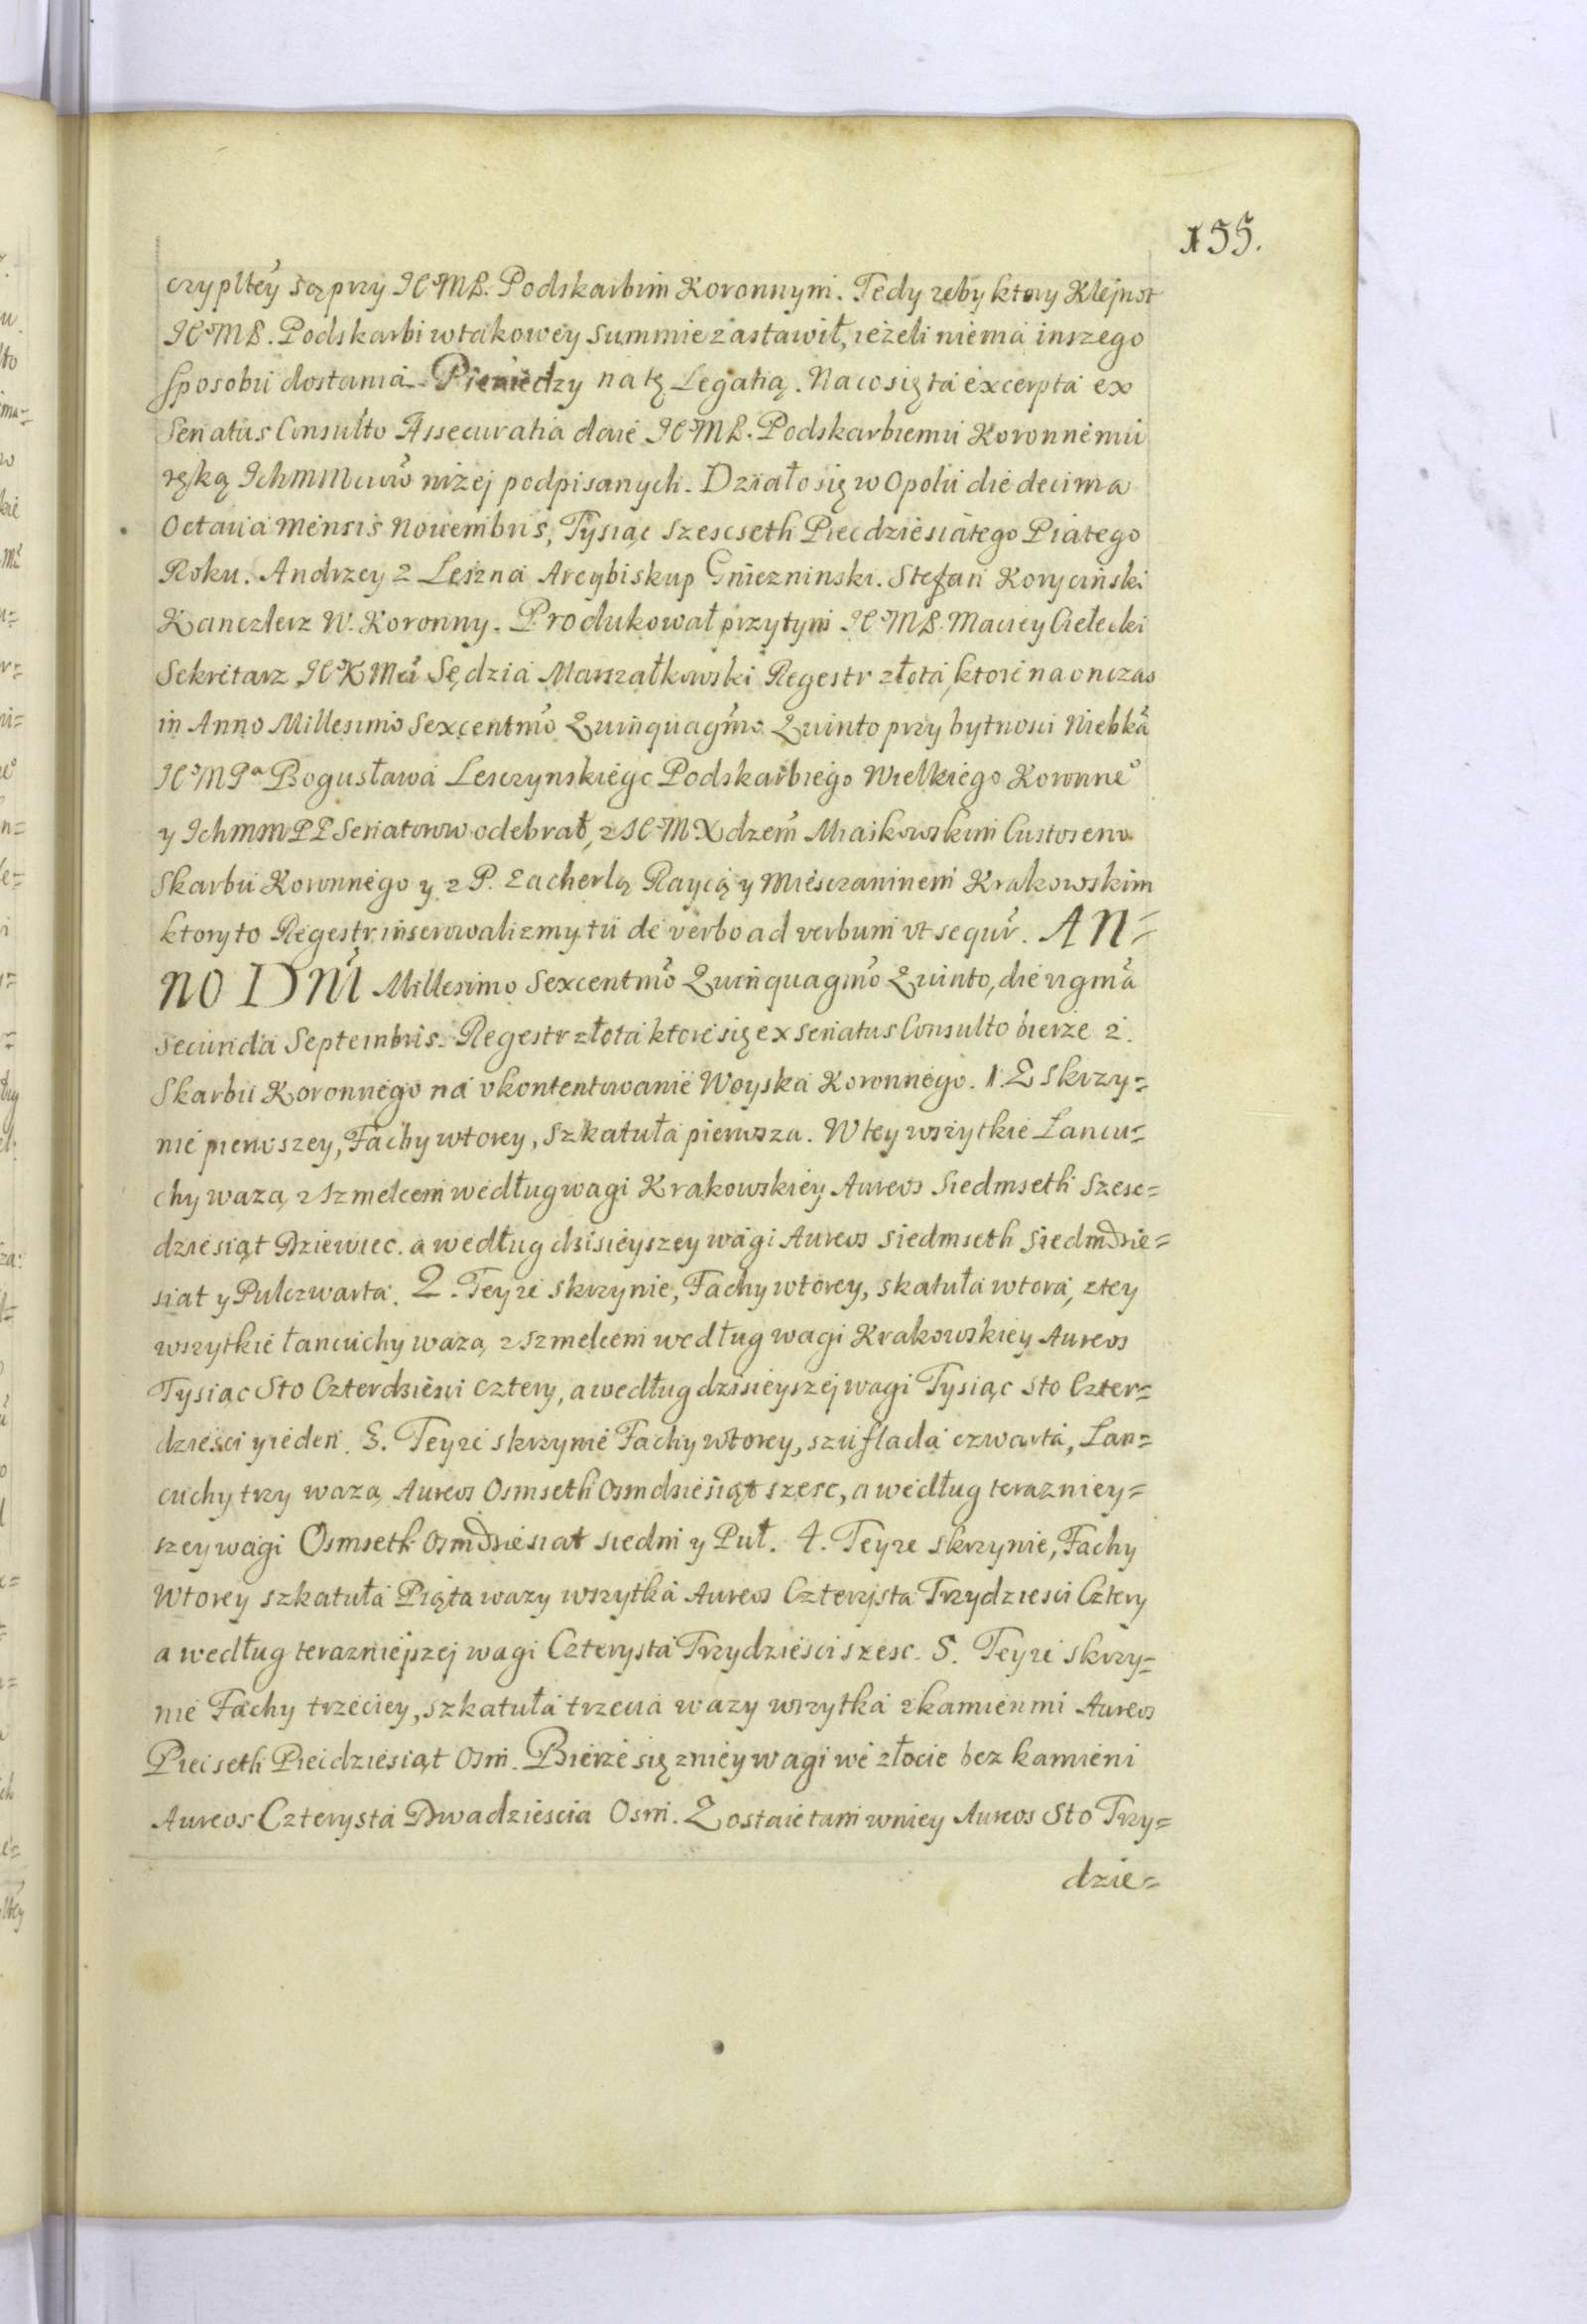 155.
czyplteÿ są przy JEMP. Podskarbim Koronnym. Tedy zeby ktory Klejnot
JEMP. Podskarbi w takowey Summie zastawił, ieżeli niema inszego
sposobu dostania Pieniedzy na tę Legatią. Na co się ta excerpta ex
Senatus Consulto Assecuratia daie JEMP. Podskarbiemu Koronnemu
ręką Ichmmciuw niżej podpisanych. Działo się w Opolu die decima
Octaua mensis Nouembris, Tysiąc Szescseth Piecdziesiątego Piątego
Roku. Andrzey z Leszna Arcybiskup Gniezninski. Stefan Koryciński
Kanczlerz W. Koronny. Produkował przytym JEMP. Maciey Cielecki
Sekretarz JEKMci Sędzia Marszałkowski Regestr złota, ktore na onczas
in Anno Millesimo Sexcentmo Quinquagmo Quinto przy bytnosci Niebka
JEMPa Bogusława Lesczynskiego Podskarbiego Wielkiego Koronneo
y Ichmm PP Senatorow odebrał, z JEMXdzem Miaskowskim Custosem
Skarbu Koronnego y z P. Zacherlą Raycą y Miesczaninem Krakowskim
ktory to Regestr inserowalizmy tu de verbo ad verbum vt sequr. AN=
NO DNI Millesimo Sexcentmo Quinquagmo Quinto, die vigma
secunda Septembris. Regestr złota ktore się ex Senatus Consulto bierze z
Skarbu Koronnego na vkontentowanie Woyska Koronnego. 1. Z Skrzy=
nie pierwszey, Fachy wtorey, Szkatuła pierwsza. W tey wszytkie Lancu=
chy ważą z szmelcem według wagi Krakowskiey Aureos Siedmseth Szesc=
dziesiąt Dziewiec. a według dzisieyszey wagi Aureos siedmseth siedmdzie=
siat y Pulczwarta. 2. Teyze skrzynie, Fachy wtorey, skatuła wtora, z tey
wszytkie łancuchy ważą z szmelcem według wagi Krakowskiey Aureos
Tysiąc Sto Czterdziesci cztery, a według dzisieyszej wagi Tysiąc sto Czter=
dziesci y ieden. 3. Teyze skrzynie Fachy wtorey, szuflada czwarta, Lan=
cuchy trzy ważą Aureos Osmseth Osmdziesiąt szesc, a według terazniey=
szey wagi Osmseth osmdziesiat siedm y Puł. 4. Teyze skrzynie, Fachy
Wtorey szkatuła Piąta wazy wszytka Aureos Czterysta Trzydziesci Cztery
a według terazniejszej wagi Czterysta Trzydziesci szesc. 5. Teyze skrzy=
nie Fachy trzeciey, szkatuła trzecia wazy wszytka z kamienmi Aureos
Piecseth Piecdziesiąt Osm. Bierze się z niey wagi we złocie bez kamieni
Aureos Czterysta Dwadziescia Osm. Zostaie tam w niey Aureos Sto Trzy=
dzie=